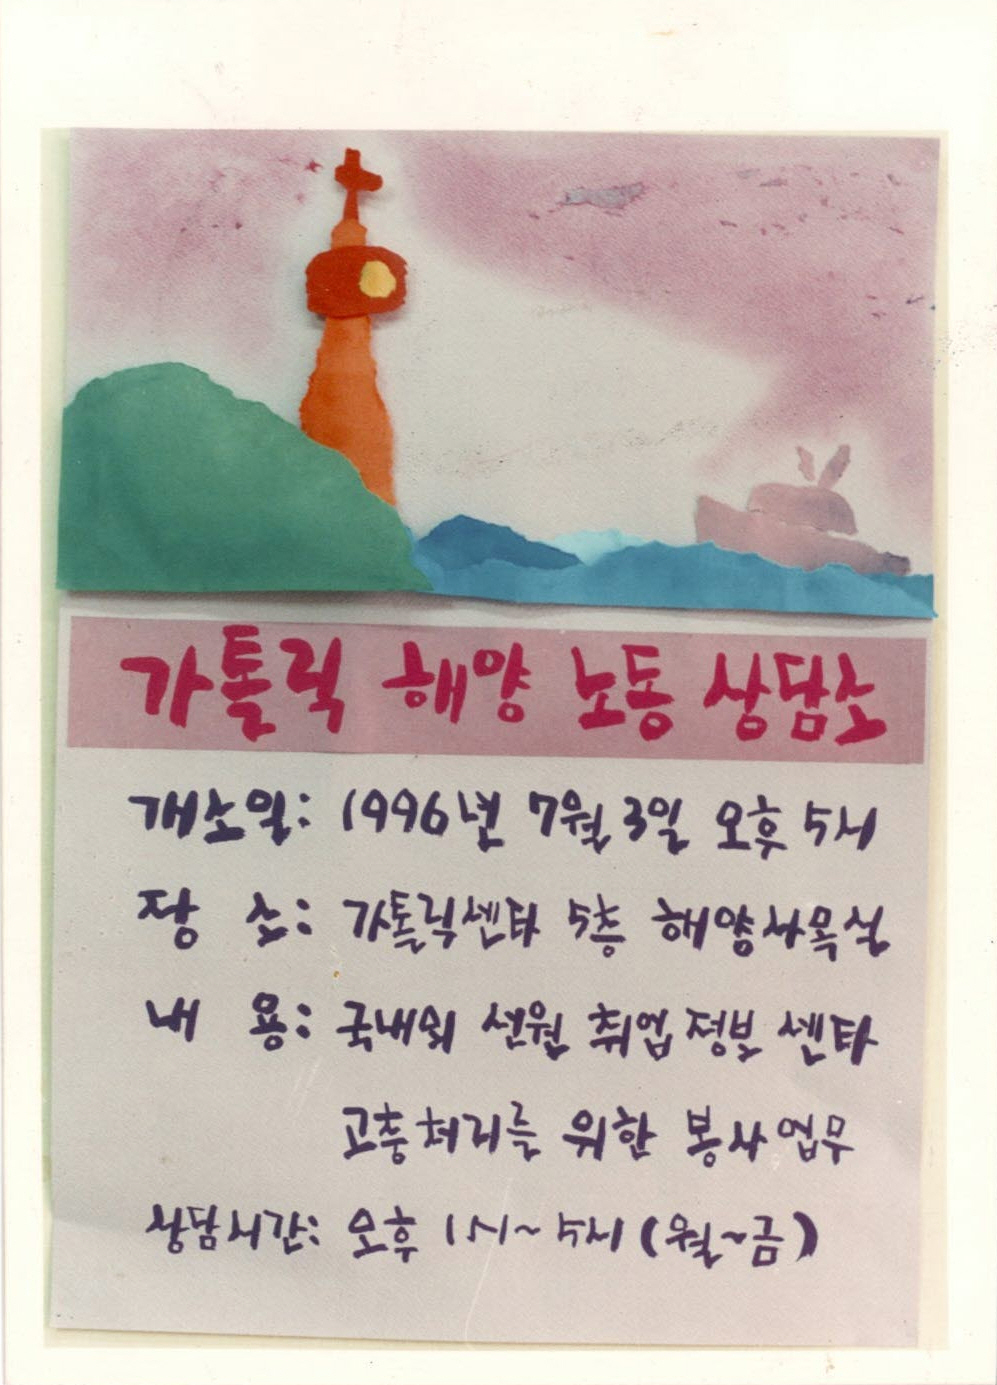 가톨릭 해양 노동 상담소
개소일: 1996년 7월 3일 오후 5시
장 소: 가톨릭센타 5층 해양사목실
내 용: 국내외 선원 취업 정보 센타
고충처리를 위한 봉사 업무
상담시간: 오후 1시~5시 (월~금)